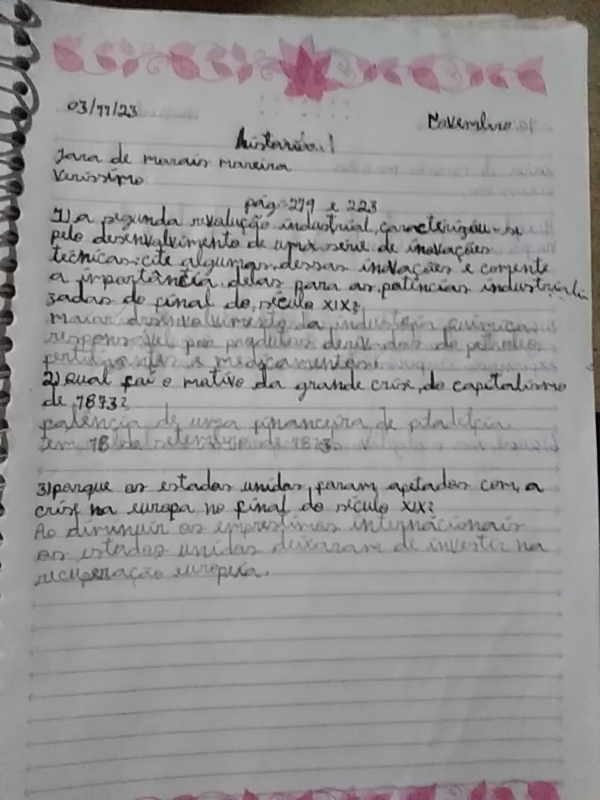 03/11/23 Novembro
História!
Iara de morais moreira
Veríssimo
pág-219 e 223
1) a segunda revolução industrial, caracterizou-se
pelo desenvolvimento de uma serie de inovações
técnicas. cite algumas dessas inovações e comente
a importância delas para as potências industriali
zadas do final do século XIX?
Maior desenvolvimento da industria química
responsável por produtos derivados do petroleo
fertilizantes e medicamentos.
2) Qual foi o motivo da grande crise do capitalismo
de 1873?
falência de uma financeira de
em 18 de setembro de 1873.
3) porque os estados unidos foram afetados com a
crise na europa no final do século XIX?
Ao os emprestimos internacionais
os estados unidos deixaram de investir na
recuperação europeia.